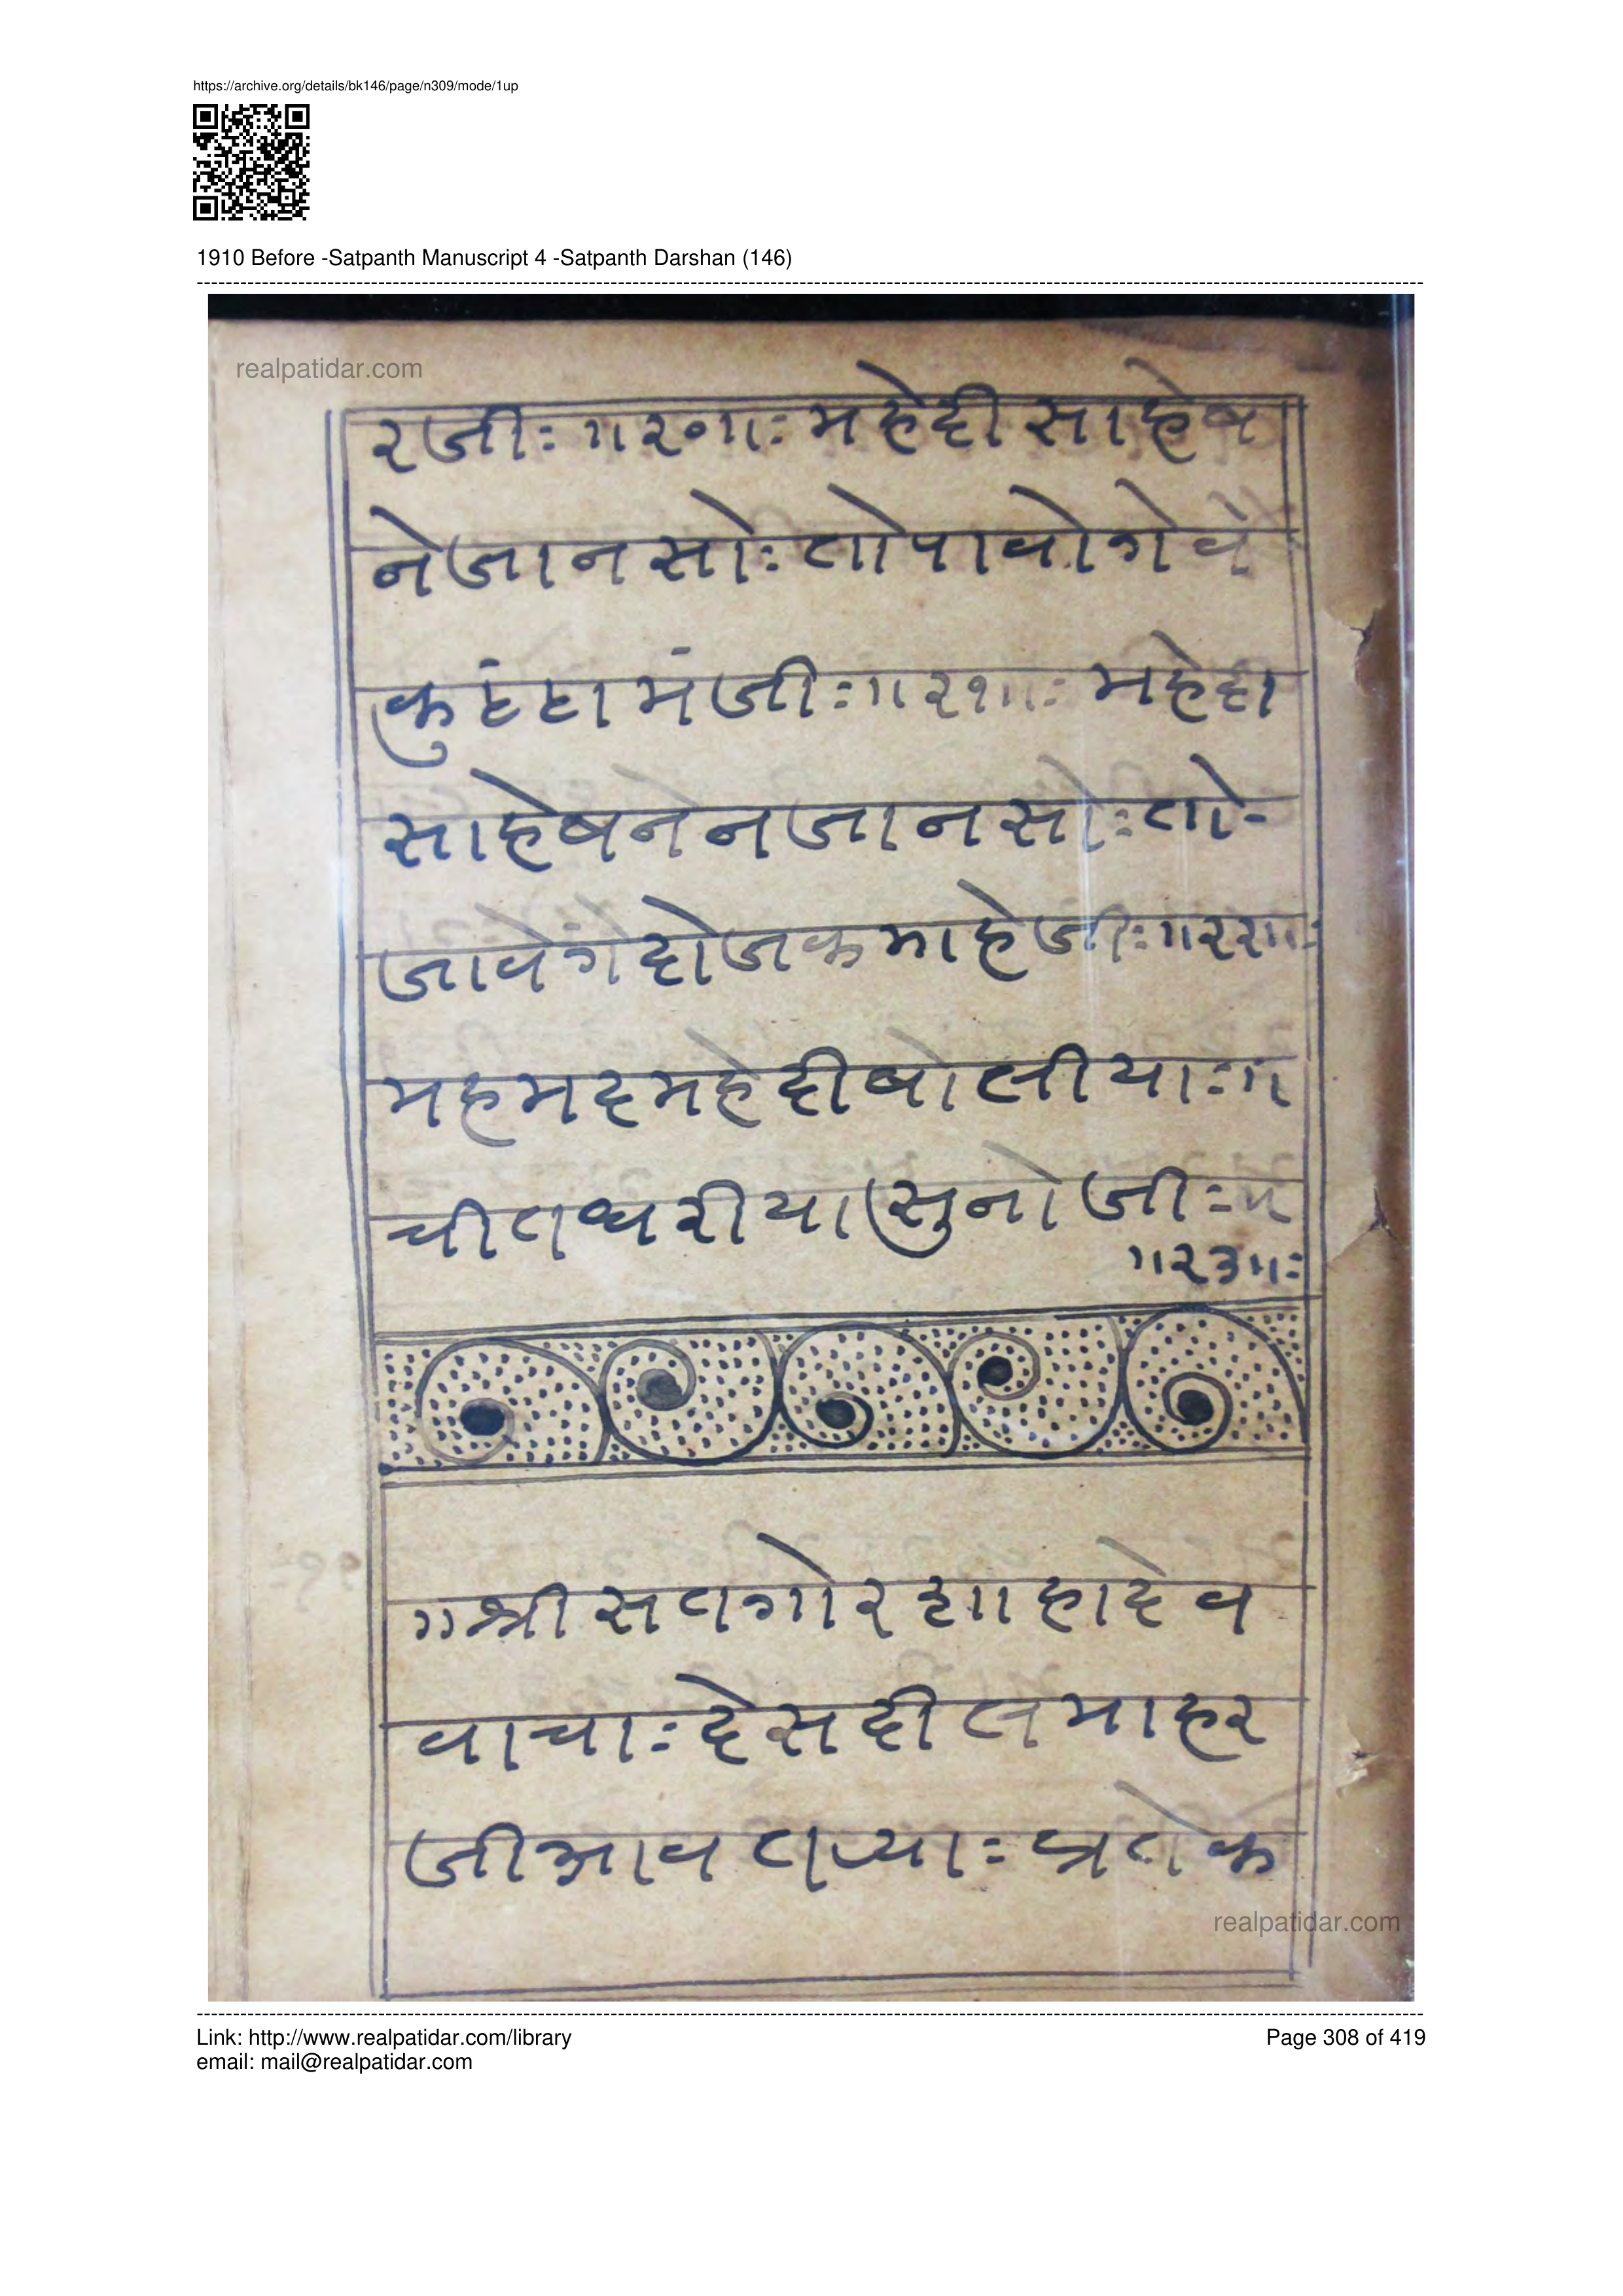 https://archive.org/details/bk146/page/n309/mode/1up
1910 Before -Satpanth Manuscript 4 -Satpanth Darshan (146)
realpatidar.com
रजीः ॥२०॥ः महेदी साहेब
ने जानसोः तो पावोगे वे
कुंठा मं जीः ॥२१॥ः महेदी
साहेब ने न जानसोः तो-
जावेंगे दोजक माहे जीः ॥२२॥ः
महमद महेदी बोलीयाः ॥
चीत धरीया सुनो जीः
॥२३॥ः
॥ श्री सतगोर शाहादेव
वाचाः देसदील माहर
जी आवताः
realpatidar.com
Link: http://www.realpatidar.com/library
Page 308 of 419
email: mail@realpatidar.com